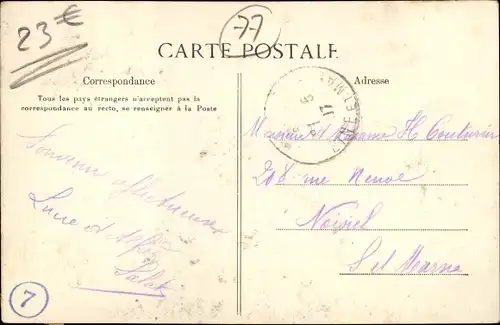 23€
77
CARTE POSTALE
Correspondance
Adresse
Tous les pays étrangers n'acceptent pas la
correspondance au recto, se renseigner à la Poste
17
Monsieur et Madame H Couturier
208 rue Neuve
Noisiel
S et Marne
Souvenir affectueux
Lucie et
7